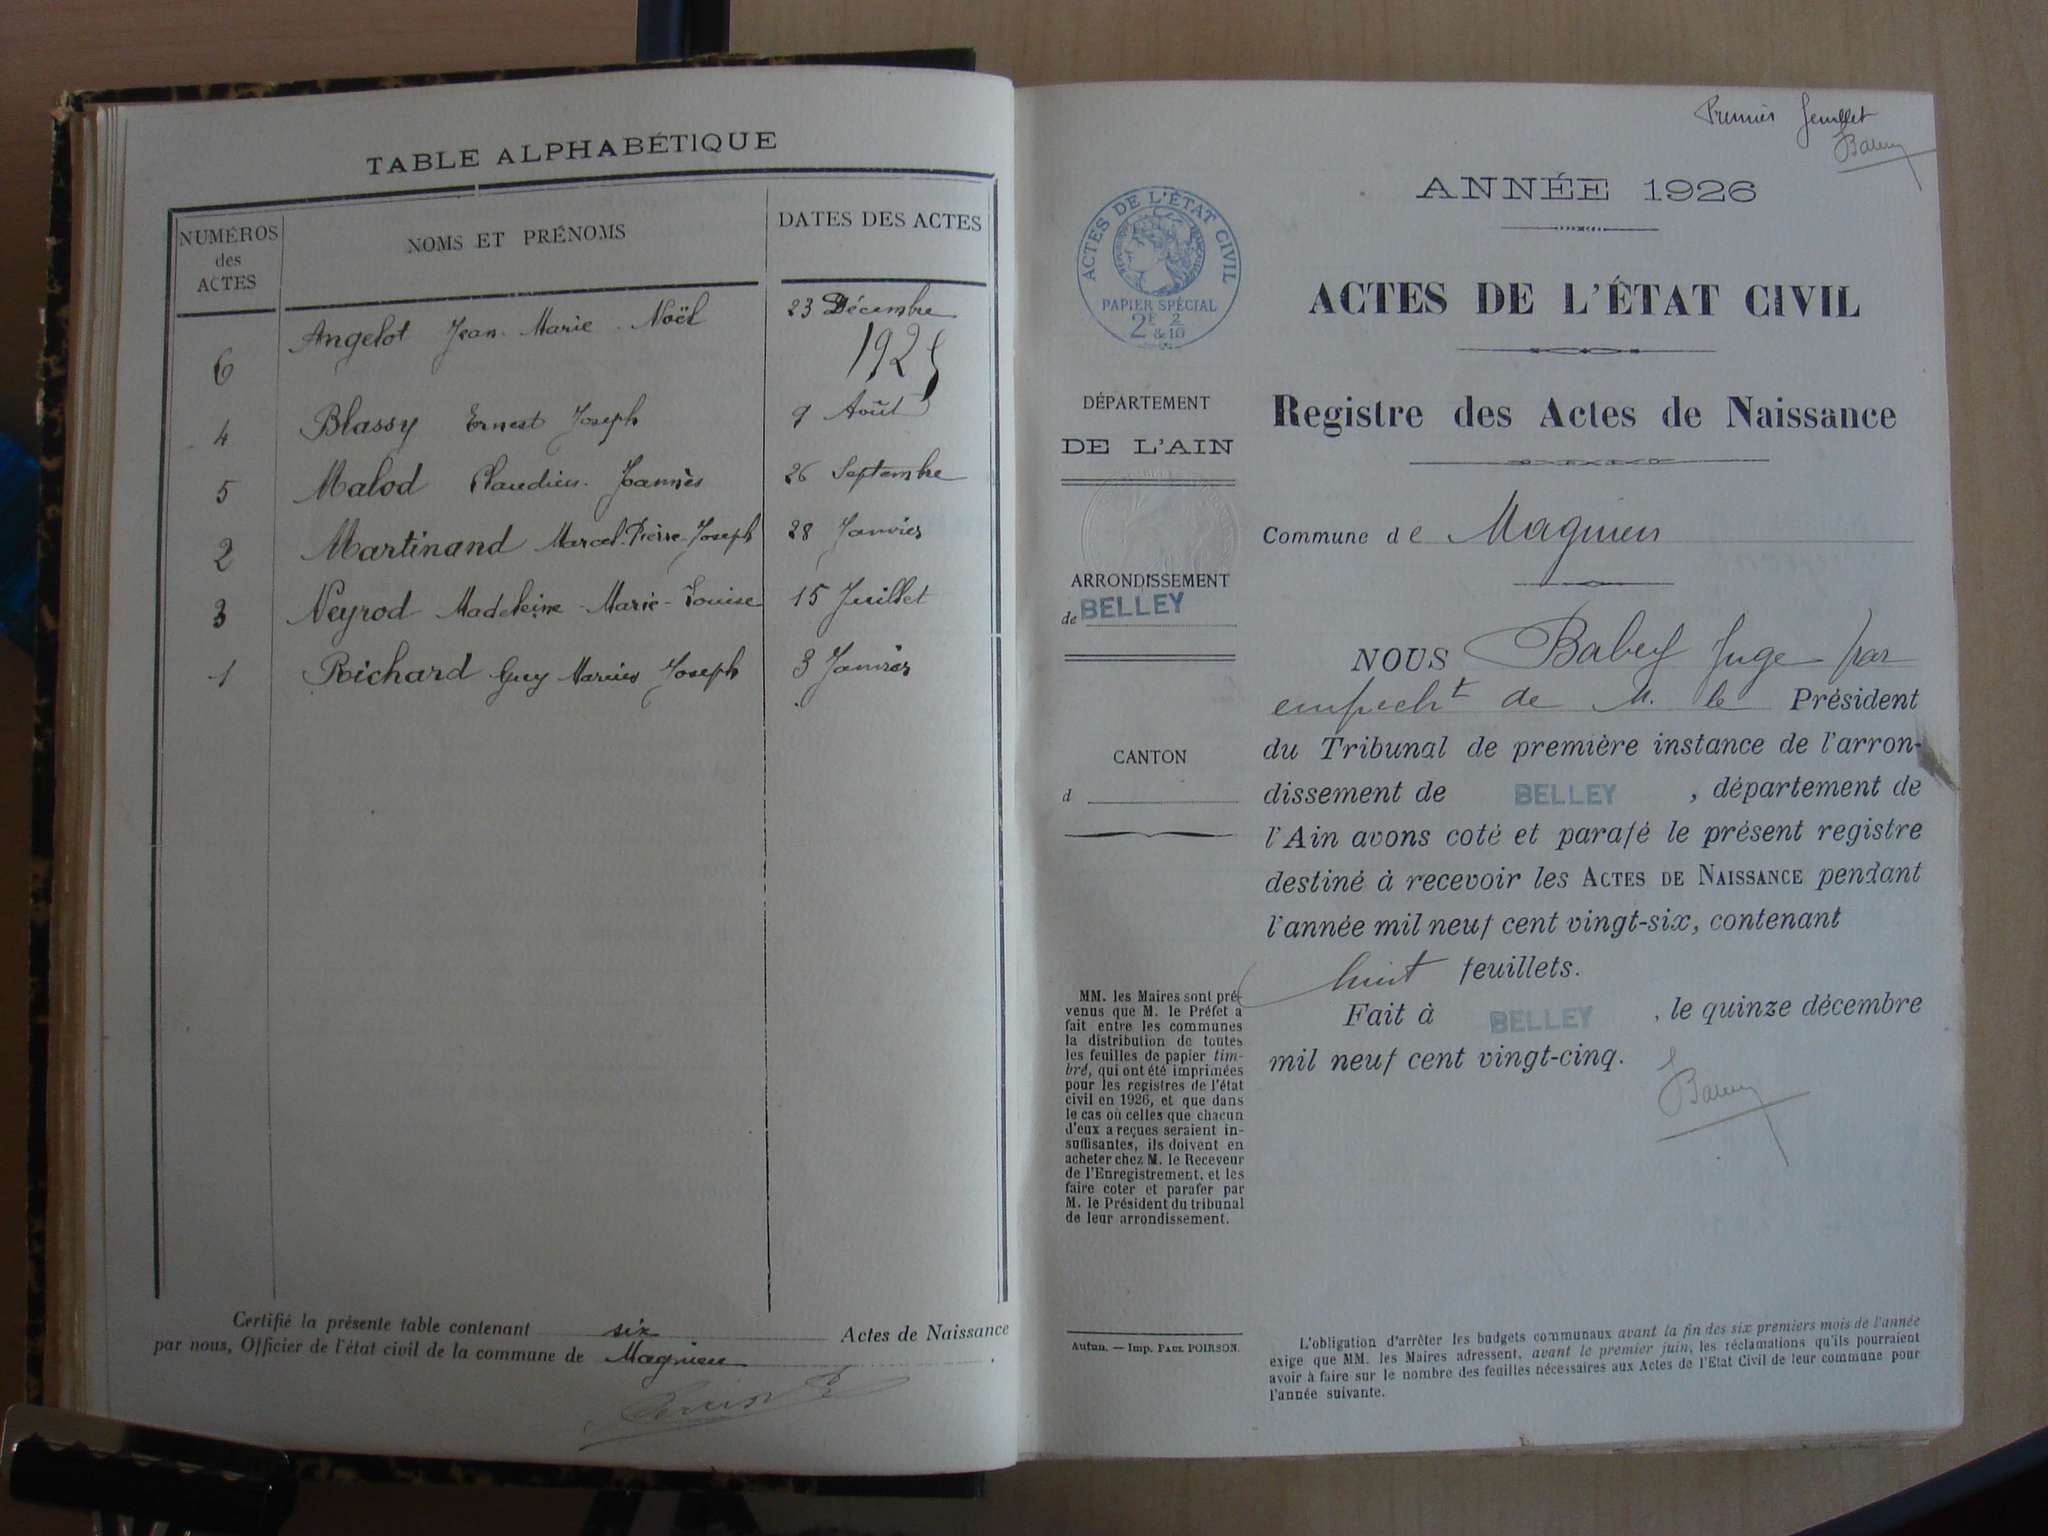 TABLE ALPHABÉTIQUE
NUMÉROS des ACTES
NOMS ET PRÉNOMS
DATES DES ACTES
6 Angelot Jean-Marie-Noël 23 Décembre
1925
4 Blassy Ernest Joseph 9 Août
5 Malod Claudius-Joannès 26 Septembre
2 Martinand Marcel-Pierre-Joseph 28 Janvier
3 Neyrod Madeleine-Marie-Louise 15 Juillet
1 Richard Guy Marius Joseph 3 Janvier
Certifié la présente table contenant six Actes de Naissance
par nous, Officier de l'état civil de la commune de Magnieu
Premier feuillet
ANNÉE 1926
ACTES DE L'ÉTAT CIVIL
PAPIER SPÉCIAL
2F & 2/10
ACTES DE L'ÉTAT CIVIL
Registre des Actes de Naissance
DÉPARTEMENT
DE L'AIN
ARRONDISSEMENT
de BELLEY
CANTON
d
Commune de Magnieu
NOUS Babey Juge par
empecht de M. le Président
du Tribunal de première instance de l'arron-
dissement de BELLEY, département de
l'Ain avons coté et parafé le présent registre
destiné à recevoir les ACTES DE NAISSANCE pendant
l'année mil neuf cent vingt-six, contenant
huit feuillets.
Fait à BELLEY, le quinze décembre
mil neuf cent vingt-cinq.
MM. les Maires sont pré-
venus que M. le Préfet a
fait entre les communes
la distribution de toutes
les feuilles de papier tim-
bré, qui ont été imprimées
pour les registres de l'état
civil en 1926, et que dans
le cas où celles que chacun
d'eux a reçues seraient in-
suffisantes, ils doivent en
acheter chez M. le Receveur
de l'Enregistrement, et les
faire coter et parafer par
M. le Président du tribunal
de leur arrondissement.
Autun. — Imp. PAUL POIRSON.
L'obligation d'arrêter les budgets communaux avant la fin des six premiers mois de l'année
exige que MM. les Maires adressent, avant le premier juin, les réclamations qu'ils pourraient
avoir à faire sur le nombre des feuilles nécessaires aux Actes de l'Etat Civil de leur commune pour
l'année suivante.